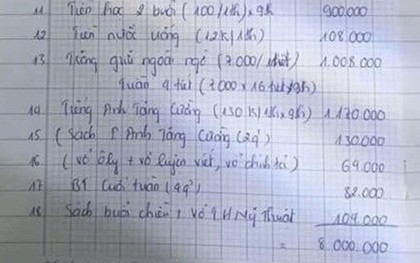 11 Tiền học 2 buổi (100/1th) x 9th 900.000
12 Tiền nước uống (12K/1th) 108.000
13 Trông giữ ngoài giờ (7.000/1tiết) 1.008.000
Tuần 4 tiết (7.000 x 16 tiết/9th)
14 Tiếng Anh Tăng Cường (130K/1th x 9th) 1.170.000
15 (Sách T Anh Tăng Cường (2q) 130.000
16 (vở ôly + vở luyện viết, vở chính tả) 69.000
17 BT Cuối tuần (4q) 82.000
18 Sách buổi chiều, vở Mỹ Thuật 104.000
= 8.000.000